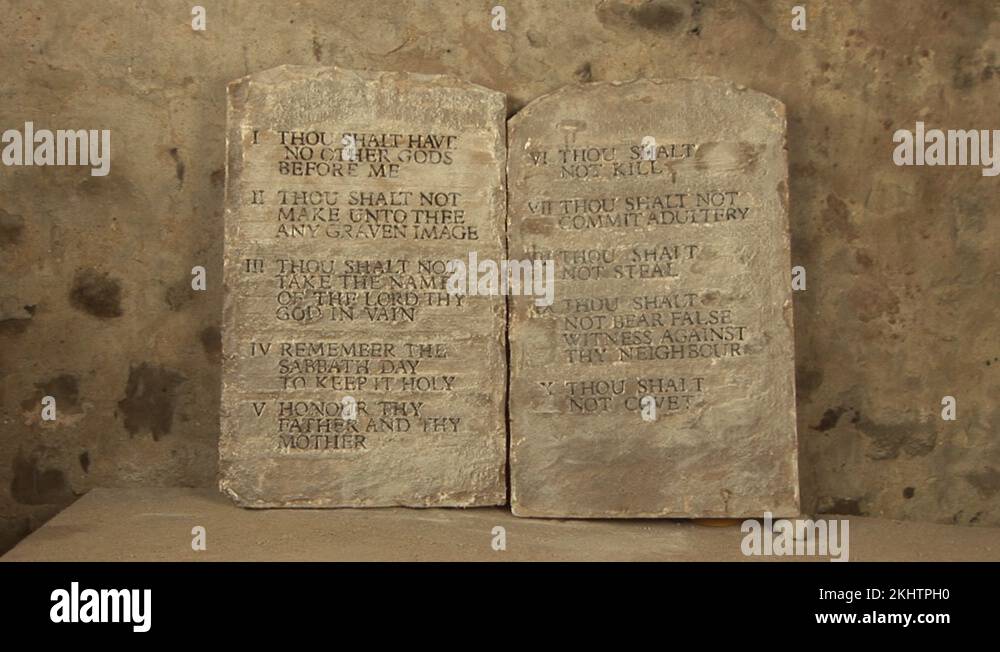 I THOU SHALT HAVE
NO OTHER GODS
BEFORE ME
II THOU SHALT NOT
MAKE UNTO THEE
ANY GRAVEN IMAGE
III THOU SHALT NOT
TAKE THE NAME
OF THE LORD THY
GOD IN VAIN
IV REMEMBER THE
SABBATH DAY
TO KEEP IT HOLY
V HONOUR THY
FATHER AND THY
MOTHER
VI THOU SHALT
NOT KILL
VII THOU SHALT NOT
COMMIT ADULTERY
THOU SHALT
NOT STEAL
IX THOU SHALT
NOT BEAR FALSE
WITNESS AGAINST
THY NEIGHBOUR
X THOU SHALT
NOT COVET
alamy
alamy
alamy
Image ID: 2KHTPH0
www.alamy.com